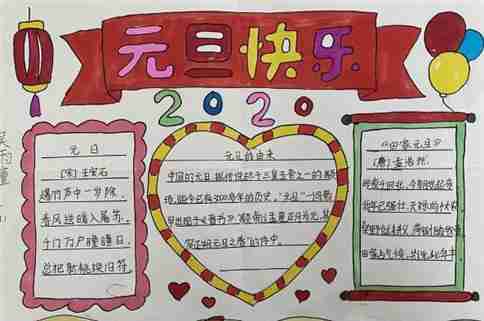 元旦快乐
2020
元日
[宋]王安石
爆竹声中一岁除,
春风送暖入屠苏。
千门万户曈曈日,
总把新桃换旧符。
元旦的由来
中国的元旦,据传说起于三皇五帝之一的颛
顼,距今已有3000多年的历史。"元旦"一词最
早出现于《晋书》:"颛帝以孟夏正月为元,其
实正朔元旦之春"的诗中。
《田家元旦》
(唐)孟浩然
昨夜斗回北,今朝岁起东
我年已强仕,无禄尚忧农
桑野就耕父,荷锄随牧童
田家占气候,共说此年丰